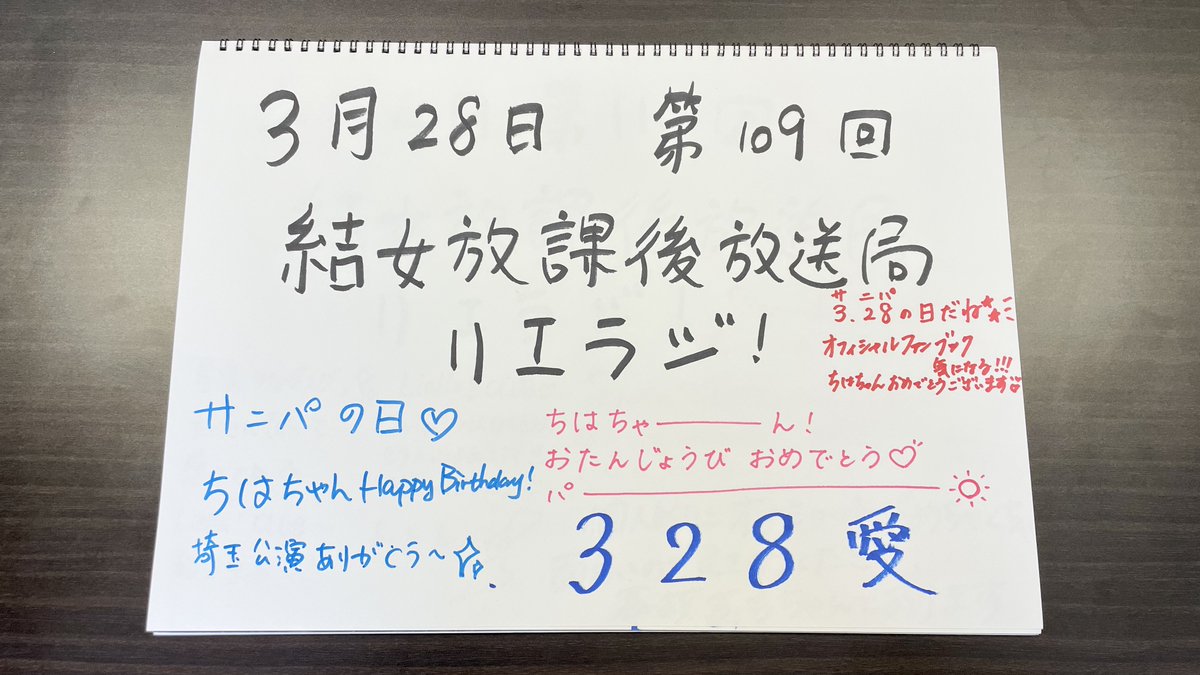 3月28日 第109回
結女放課後放送局
リエラジ!
サニパ
3.28の日だね☆☆
オフィシャルファンブック
気になる!!!
ちはちゃんおめでとうございます♡
サニパの日♡
ちはちゃんHappy Birthday!
埼玉公演ありがとう〜☆
ちはちゃーーーん!
おたんじょうび おめでとう♡
パー
328愛